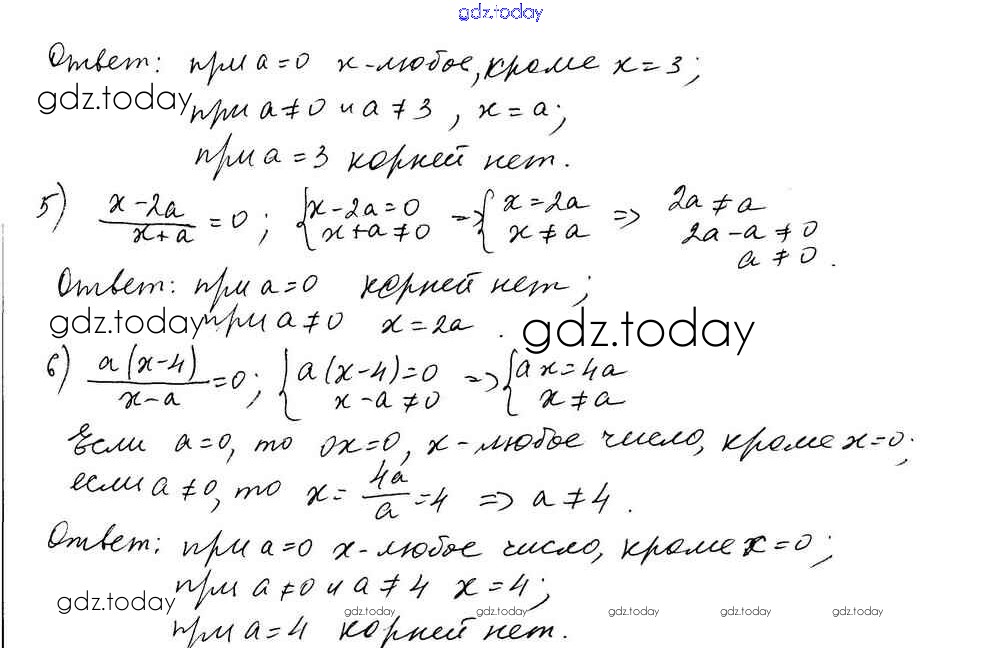 gdz.today
Ответ: при a=0 x-любое, кроме x=3;
gdz.today при a≠0 и a≠3, x=a;
при a=3 корней нет.
5) (x-2a)/(x+a)=0; {x-2a=0 x+a≠0 => {x=2a x≠a => 2a≠a 2a-a≠0 a≠0.
Ответ: при a=0 корней нет;
gdz.today при a≠0 x=2a. gdz.today
6) a(x-4)/(x-a)=0; {a(x-4)=0 x-a≠0 => {ax=4a x≠a
Если a=0, то 0x=0, x-любое число, кроме x=0;
если a≠0, то x=4a/a=4 => a≠4.
Ответ: при a=0 x-любое число, кроме x=0;
при a≠0 и a≠4 x=4;
gdz.today gdz.today gdz.today gdz.today gdz.today
при a=4 корней нет.